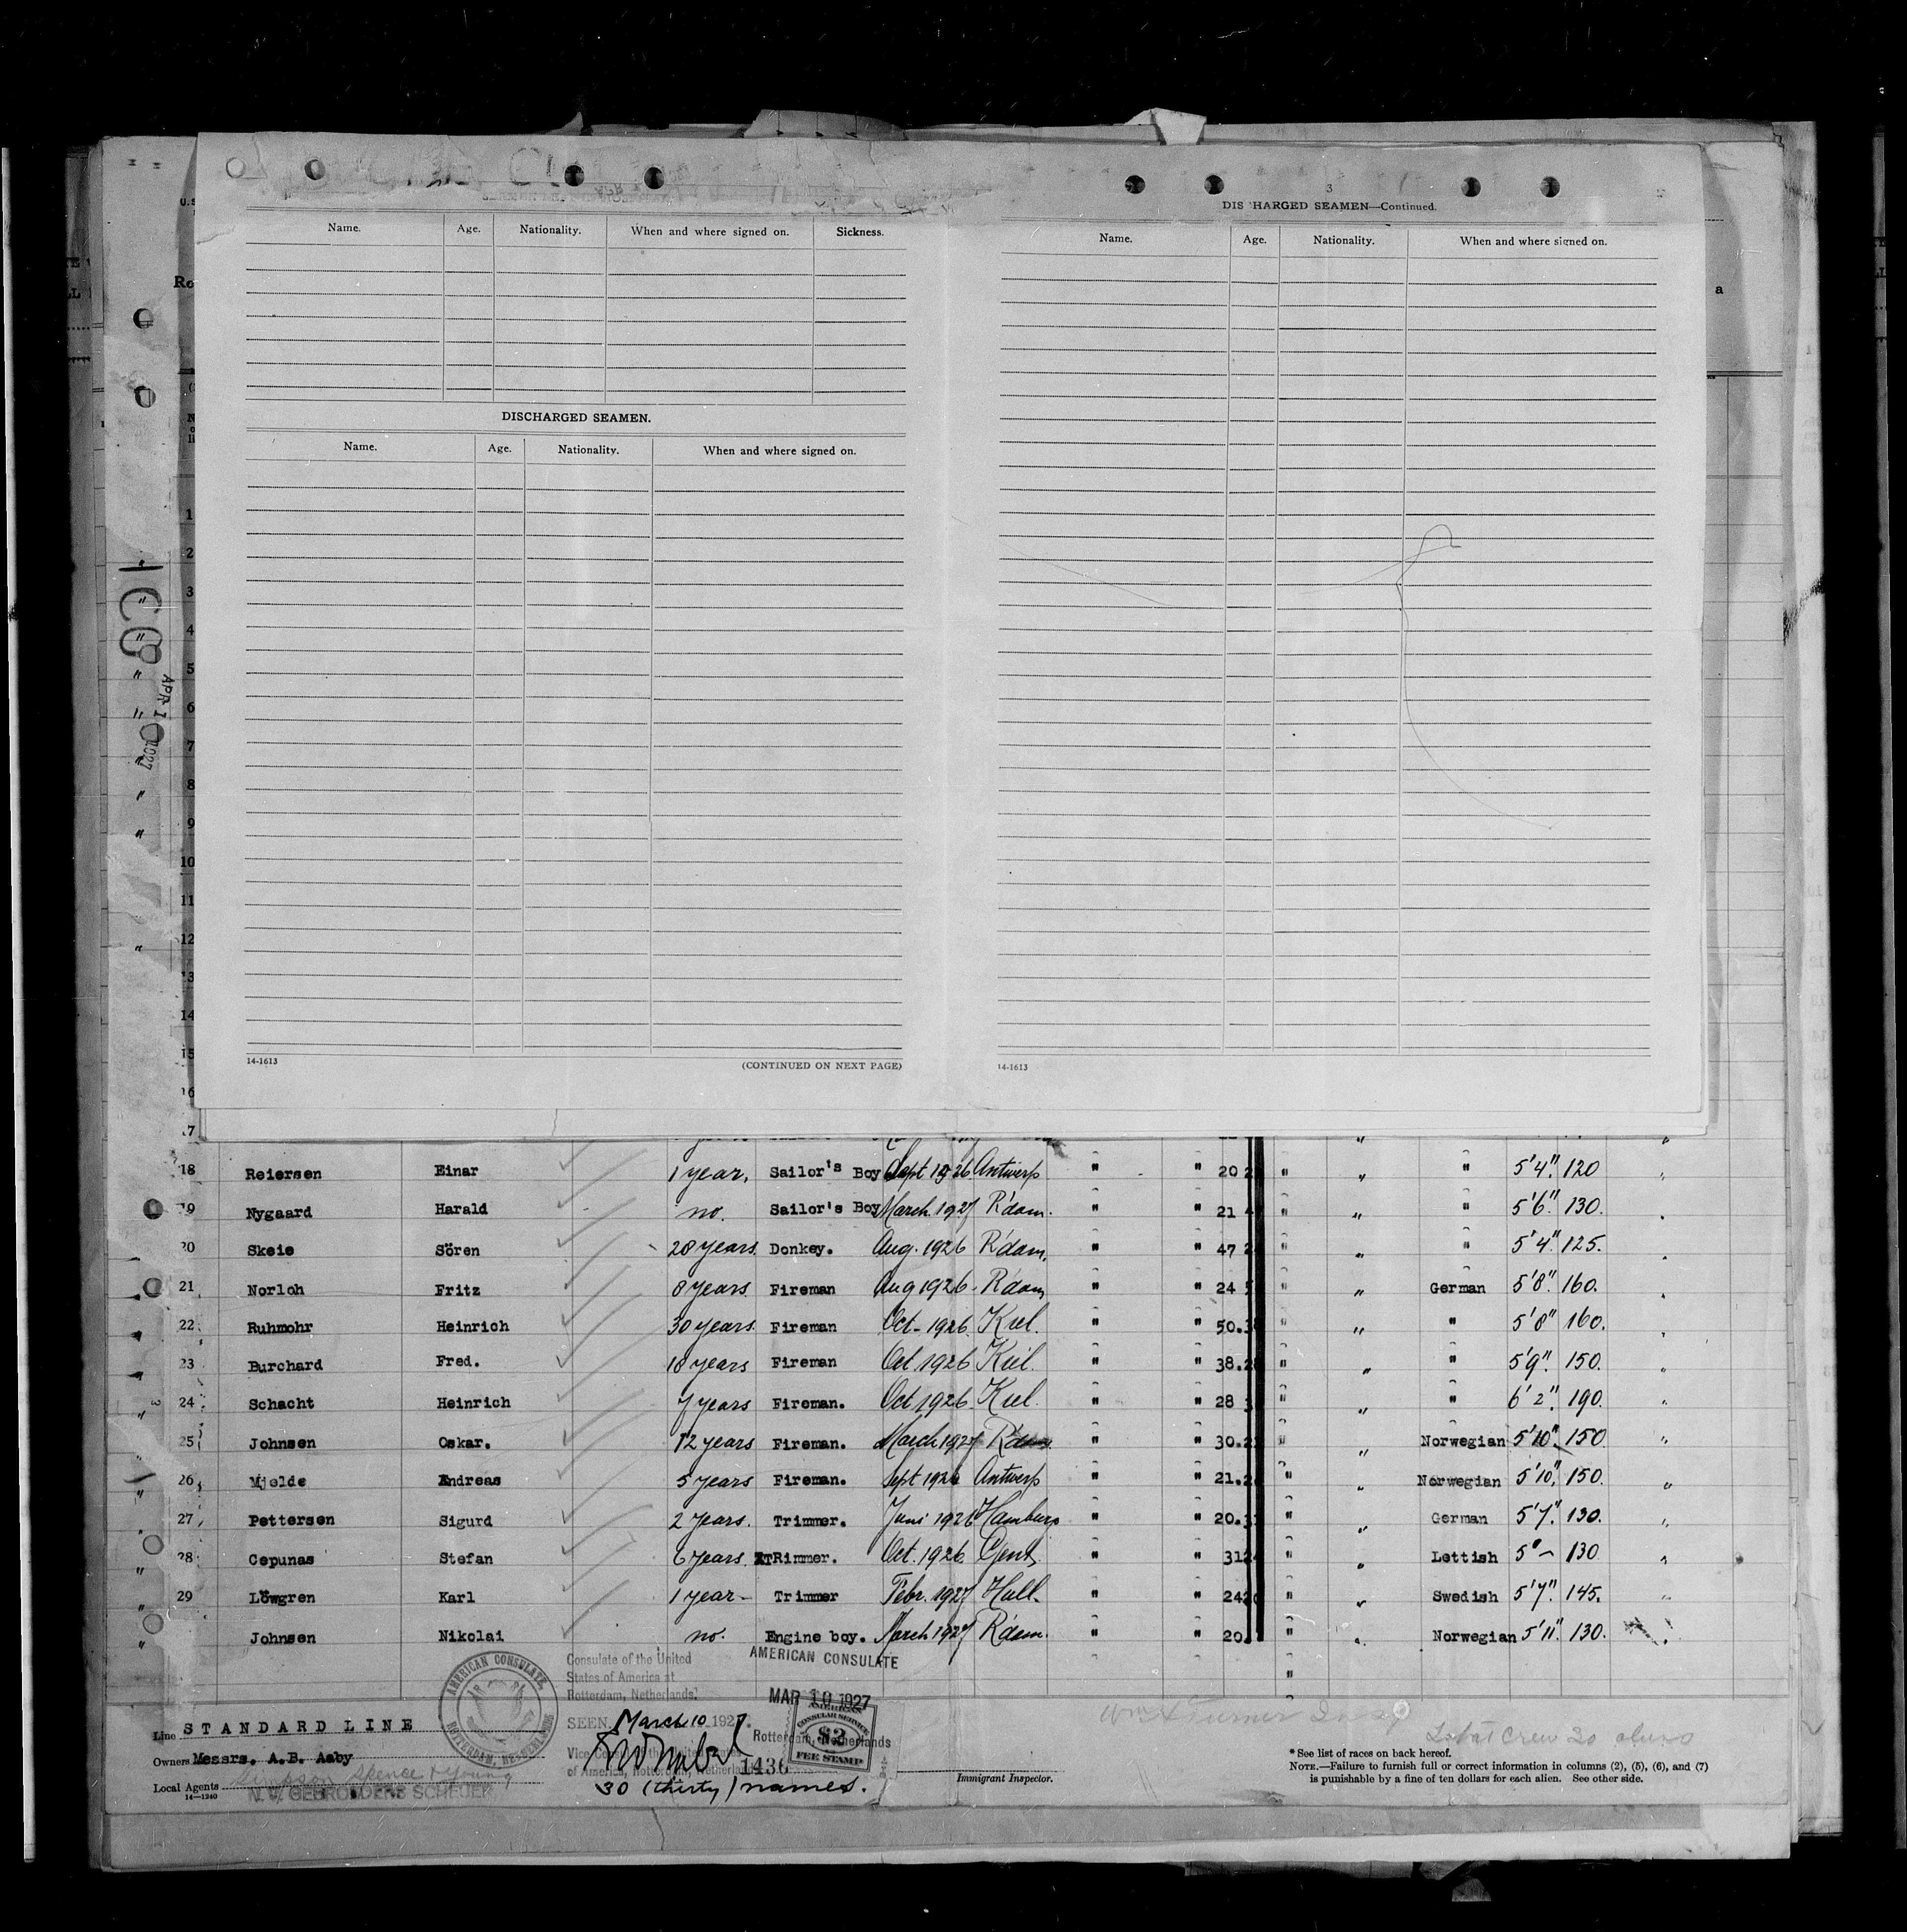 3
DISCHARGED SEAMEN—Continued.
Name. Age. Nationality. When and where signed on. Sickness.
Name. Age. Nationality. When and where signed on.
DISCHARGED SEAMEN.
Name. Age. Nationality. When and where signed on.
14-1613 (CONTINUED ON NEXT PAGE)
14-1613
APR 1 1927
1
2
3
4
5
6
7
8
9
10
11
12
13
14
15
16
17
18 Reiersen Einar 1 year. Sailor's Boy Sept 1926 Antwerp " " 20 " " " 5'4" 120
19 Nygaard Harald no. Sailor's Boy March 1927 R'dam. " " 21 " " " 5'6" 130.
20 Skeie Sören 28 years Donkey. Aug. 1926 R'dam. " " 47 " " " 5'4" 125.
21 Norloh Fritz 8 years Fireman Aug 1926 R'dam " " 24 " " German 5'8" 160.
22 Ruhmohr Heinrich 30 years Fireman Oct- 1926 Kiel. " " 50. " " " 5'8" 160.
23 Burchard Fred. 18 years Fireman Oct 1926 Kiel. " " 38. " " " 5'9" 150.
24 Schacht Heinrich 7 years Fireman. Oct 1926 Kiel. " " 28 " " " 6'2" 190.
25 Johnsen Oskar. 12 years Fireman. March 1927 R'dam " " 30. " " Norwegian 5'10" 150
26 Mjelde Andreas 5 years Fireman. Sept 1926 Antwerp " " 21. " " Norwegian 5'10" 150.
27 Pettersen Sigurd 2 years. Trimmer. Juni 1926 Hamburg " " 20. " " German 5'7" 130.
28 Cepunas Stefan 6 years TRimmer. Oct. 1926 Gent " " 31 " " Lettish 5' – 130
29 Löwgren Karl 1 year- Trimmer Febr. 1927 Hull. " " 24 " " Swedish 5'7" 145.
Johnsen Nikolai no. Engine boy. March 1927 R'dam. " " 20. " " Norwegian 5'11" 130.
AMERICAN CONSULATE
Consulate of the United
States of America at
Rotterdam, Netherlands.
MAR 10 1927
SEEN March 10 1927.
Rotterdam, Netherlands
Vice Consul of the United States
of America, Rotterdam, Netherlands
1436
30 (thirty) names.
AMERICAN CONSULATE, ROTTERDAM, NETHERLANDS
AMERICAN CONSULAR SERVICE $2 FEE STAMP
Line STANDARD LINE
Owners Messrs. A.B. Aaby
Local Agents Simpson Spence & Young
N.V. GEBROEDERS SCHEUER
14—1240
Immigrant Inspector.
Total crew 30 aliens
*See list of races on back hereof.
NOTE.—Failure to furnish full or correct information in columns (2), (5), (6), and (7)
is punishable by a fine of ten dollars for each alien. See other side.